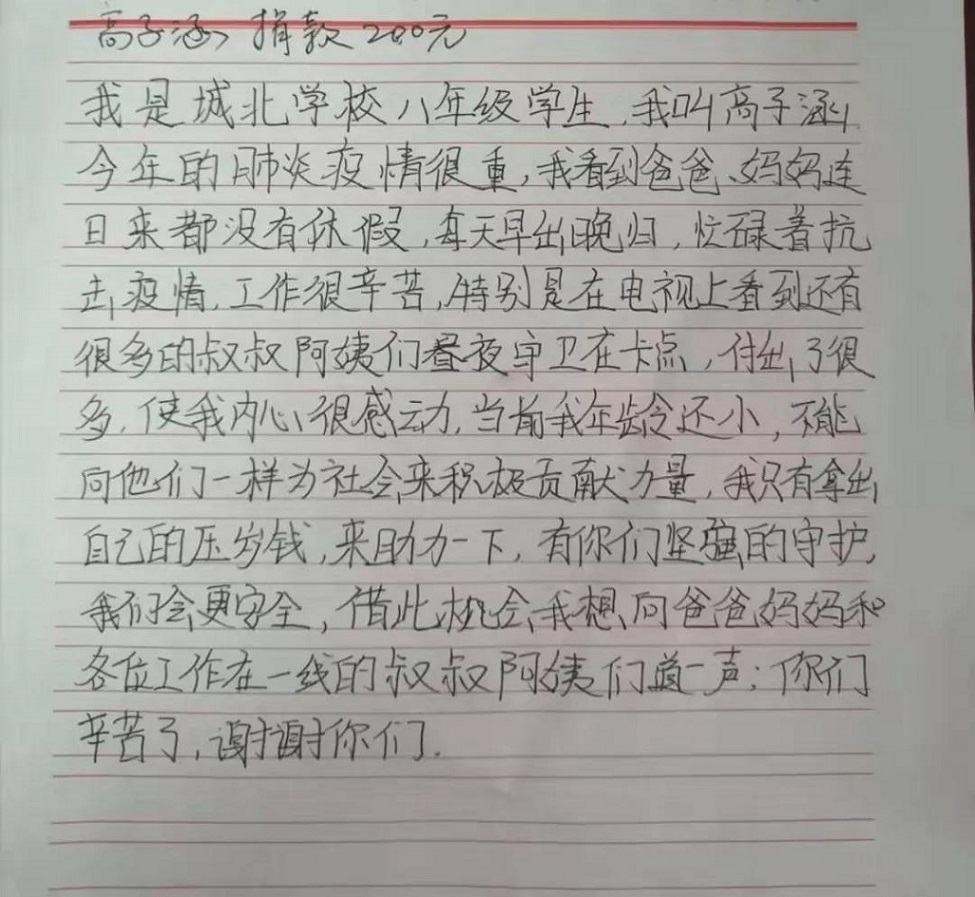 高子涵 捐款200元
我是城北学校八年级学生,我叫高子涵,
今年的肺炎疫情很重,我看到爸爸、妈妈连
日来都没有休假,每天早出晚归,忙碌着抗
击疫情,工作很辛苦,特别是在电视上看到还有
很多的叔叔阿姨们昼夜守卫在卡点,付出了很
多,使我内心很感动,当前我年龄还小,不能
向他们一样为社会来积极贡献力量,我只有拿出
自己的压岁钱,来助力一下,有你们坚强的守护,
我们会更安全,借此机会,我想向爸爸妈妈和
各位工作在一线的叔叔阿姨们道一声:你们
辛苦了,谢谢你们.